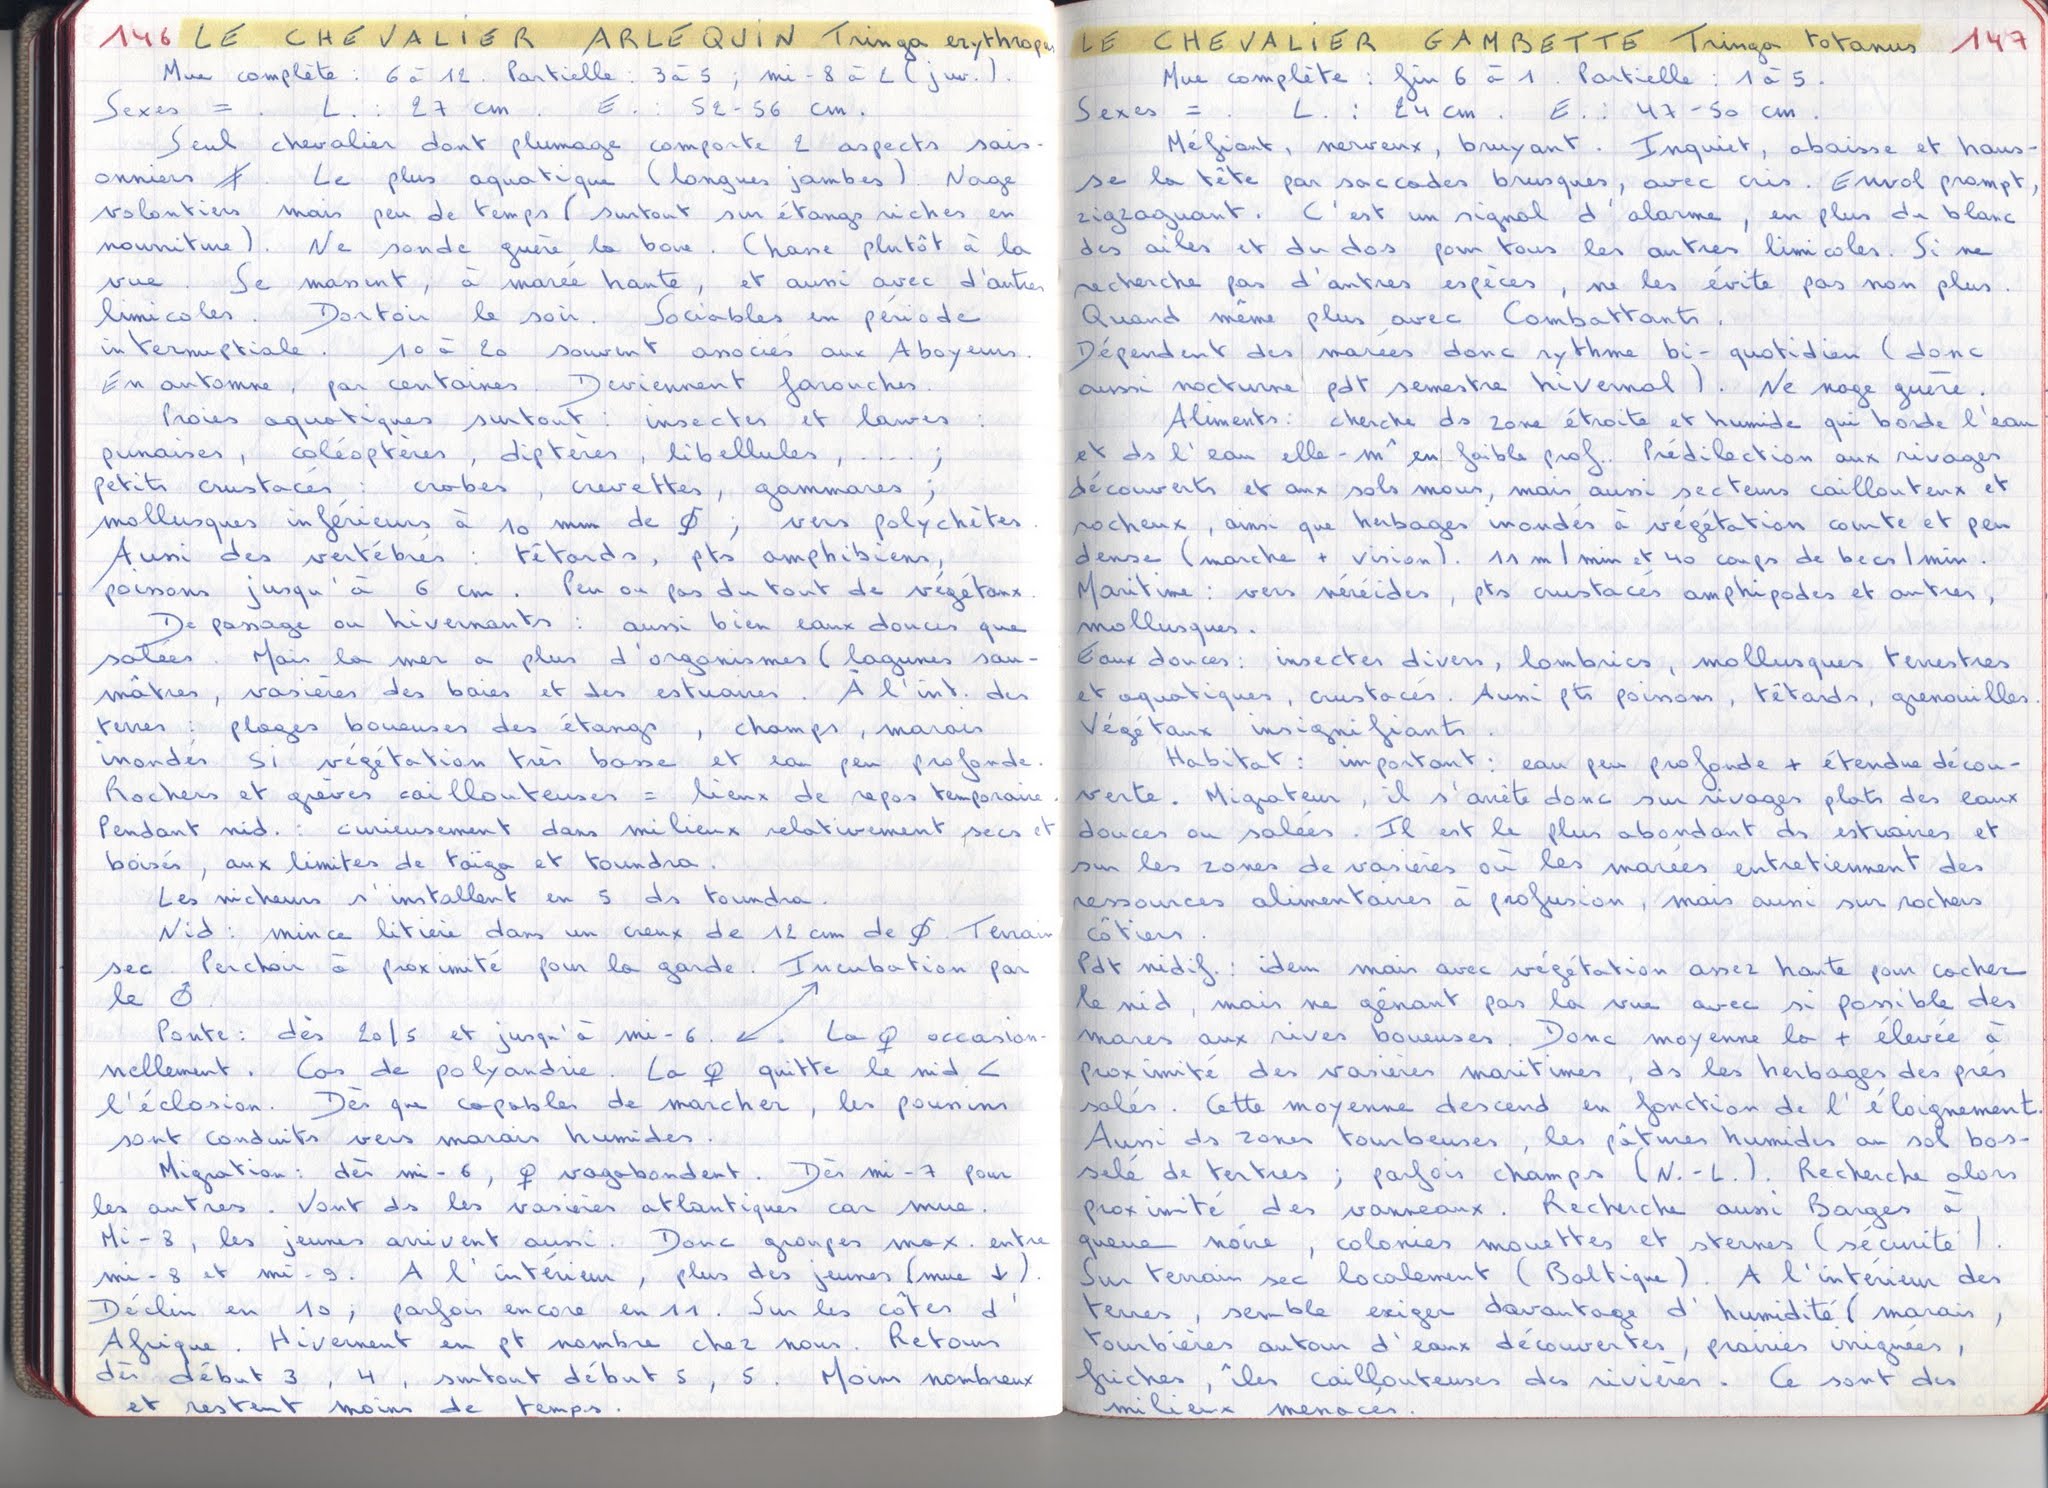 146 LE CHEVALIER ARLEQUIN Tringa erythropus
Mue complète : 6 à 12. Partielle : 3 à 5 ; mi-8 à 2 (juv.).
Sexes = . L. : 27 cm . E. : 52-56 cm.
Seul chevalier dont plumage comporte 2 aspects sais-
onniers ≠. Le plus aquatique (longues jambes). Nage
volontiers mais peu de temps (surtout sur étangs riches en
nourriture). Ne sonde guère la boue. Chasse plutôt à la
vue. Se massent, à marée haute, et aussi avec d'autres
limicoles. Dortoir le soir. Sociables en période
internuptiale. 10 à 20 souvent associés aux Aboyeurs.
En automne, par centaines. Deviennent farouches.
Proies aquatiques surtout : insectes et larves :
punaises, coléoptères, diptères, libellules, .... ;
petits crustacés : crabes, crevettes, gammares ;
mollusques inférieurs à 10 mm de Ø ; vers polychètes.
Aussi des vertébrés : têtards, pts amphibiens,
poissons jusqu'à 6 cm. Peu ou pas du tout de végétaux.
De passage ou hivernants : aussi bien eaux douces que
salées. Mais la mer a plus d'organismes (lagunes sau-
mâtres, vasières des baies et des estuaires. À l'int. des
terres : plages boueuses des étangs, champs, marais
inondés si végétation très basse et eau peu profonde.
Rochers et grèves caillouteuses = lieux de repos temporaire.
Pendant nid. : curieusement dans milieux relativement secs et
boisés, aux limites de taïga et toundra.
Les nicheurs s'installent en 5 ds toundra.
Nid : mince litière dans un creux de 12 cm de Ø. Terrain
sec. Perchoir à proximité pour la garde. Incubation par
le ♂.
Ponte : dès 20/5 et jusqu'à mi-6. ↙. La ♀ occasion-
nellement. Cas de polyandrie. La ♀ quitte le nid <
l'éclosion. Dès que capables de marcher, les poussins
sont conduits vers marais humides.
Migration : dès mi-6, ♀ vagabondent. Dès mi-7 pour
les autres. Vont ds les vasières atlantiques car mue.
Mi-8, les jeunes arrivent aussi. Donc groupes max. entre
mi-8 et mi-9. A l'intérieur, plus des jeunes (mue ↓).
Déclin en 10 ; parfois encore en 11. Sur les côtes d'
Afrique. Hivernent en pt nombre chez nous. Retours
dès début 3, 4, surtout début 5, 5. Moins nombreux
et restent moins de temps.
LE CHEVALIER GAMBETTE Tringa totanus 147
Mue complète : fin 6 à 1. Partielle : 1 à 5.
Sexes = . L. : 24 cm. E. : 47-50 cm.
Méfiant, nerveux, bruyant. Inquiet, abaisse et haus-
se la tête par saccades brusques, avec cris. Envol prompt,
zigzaguant. C'est un signal d'alarme, en plus du blanc
des ailes et du dos pour tous les autres limicoles. Si ne
recherche pas d'autres espèces, ne les évite pas non plus.
Quand même plus avec Combattants.
Dépendent des marées donc rythme bi-quotidien (donc
aussi nocturne pdt semestre hivernal). Ne nage guère.
Aliments : cherche ds zone étroite et humide qui borde l'eau
et ds l'eau elle-m^ en faible prof.. Prédilection aux rivages
découverts et aux sols mous, mais aussi secteurs caillouteux et
rocheux, ainsi que herbages inondés à végétation courte et peu
dense (marche + vision). 11 m/min et 40 coups de becs/min.
Maritime : vers néréides, pts crustacés amphipodes et autres,
mollusques.
Eaux douces : insectes divers, lombrics, mollusques terrestres
et aquatiques, crustacés. Aussi pts poissons, têtards, grenouilles.
Végétaux insignifiants.
Habitat : important : eau peu profonde + étendue décou-
verte. Migrateur, il s'arrête donc sur rivages plats des eaux
douces ou salées. Il est le plus abondant ds estuaires et
sur les zones de vasières où les marées entretiennent des
ressources alimentaires à profusion, mais aussi sur rochers
côtiers.
Pdt nidif. : idem mais avec végétation assez haute pour cacher
le nid, mais ne gênant pas la vue avec si possible des
mares aux rives boueuses. Donc moyenne la + élevée à
proximité des vasières maritimes, ds les herbages des prés
salés. Cette moyenne descend en fonction de l'éloignement.
Aussi ds zones tourbeuses, les pâtures humides au sol bos-
selé de tertres ; parfois champs (N.-L.). Recherche alors
proximité des vanneaux. Recherche aussi Barges à
queue noire, colonies mouettes et sternes (sécurité).
Sur terrain sec localement (Baltique). A l'intérieur des
terres, semble exiger davantage d'humidité (marais,
tourbières autour d'eaux découvertes, prairies irriguées,
friches, îles caillouteuses des rivières. Ce sont des
milieux menacés.